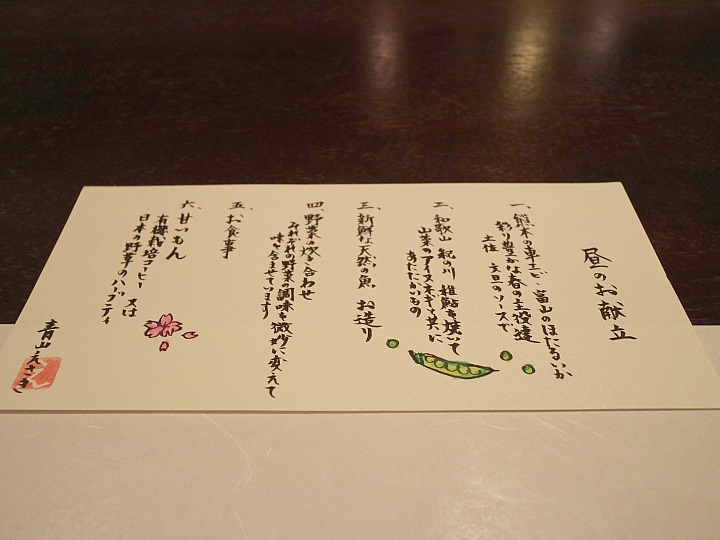 昼のお献立
一、熊本の車エビ 富山のほたるいか
彩り豊かな春の主役達
土佐 文旦のソースで
二、和歌山 紀の川 稚鮎を焼いて
山菜のアイヌネギと共に
あたたかいもの
三、新鮮な天然の魚 お造り
四、野菜の炊き合わせ
それぞれの野菜の調味も微妙に変えて
味を含ませています
五、お食事
六、甘いもん
有機栽培コーヒー 又は
日本の野草のハーブティ
青山えさき